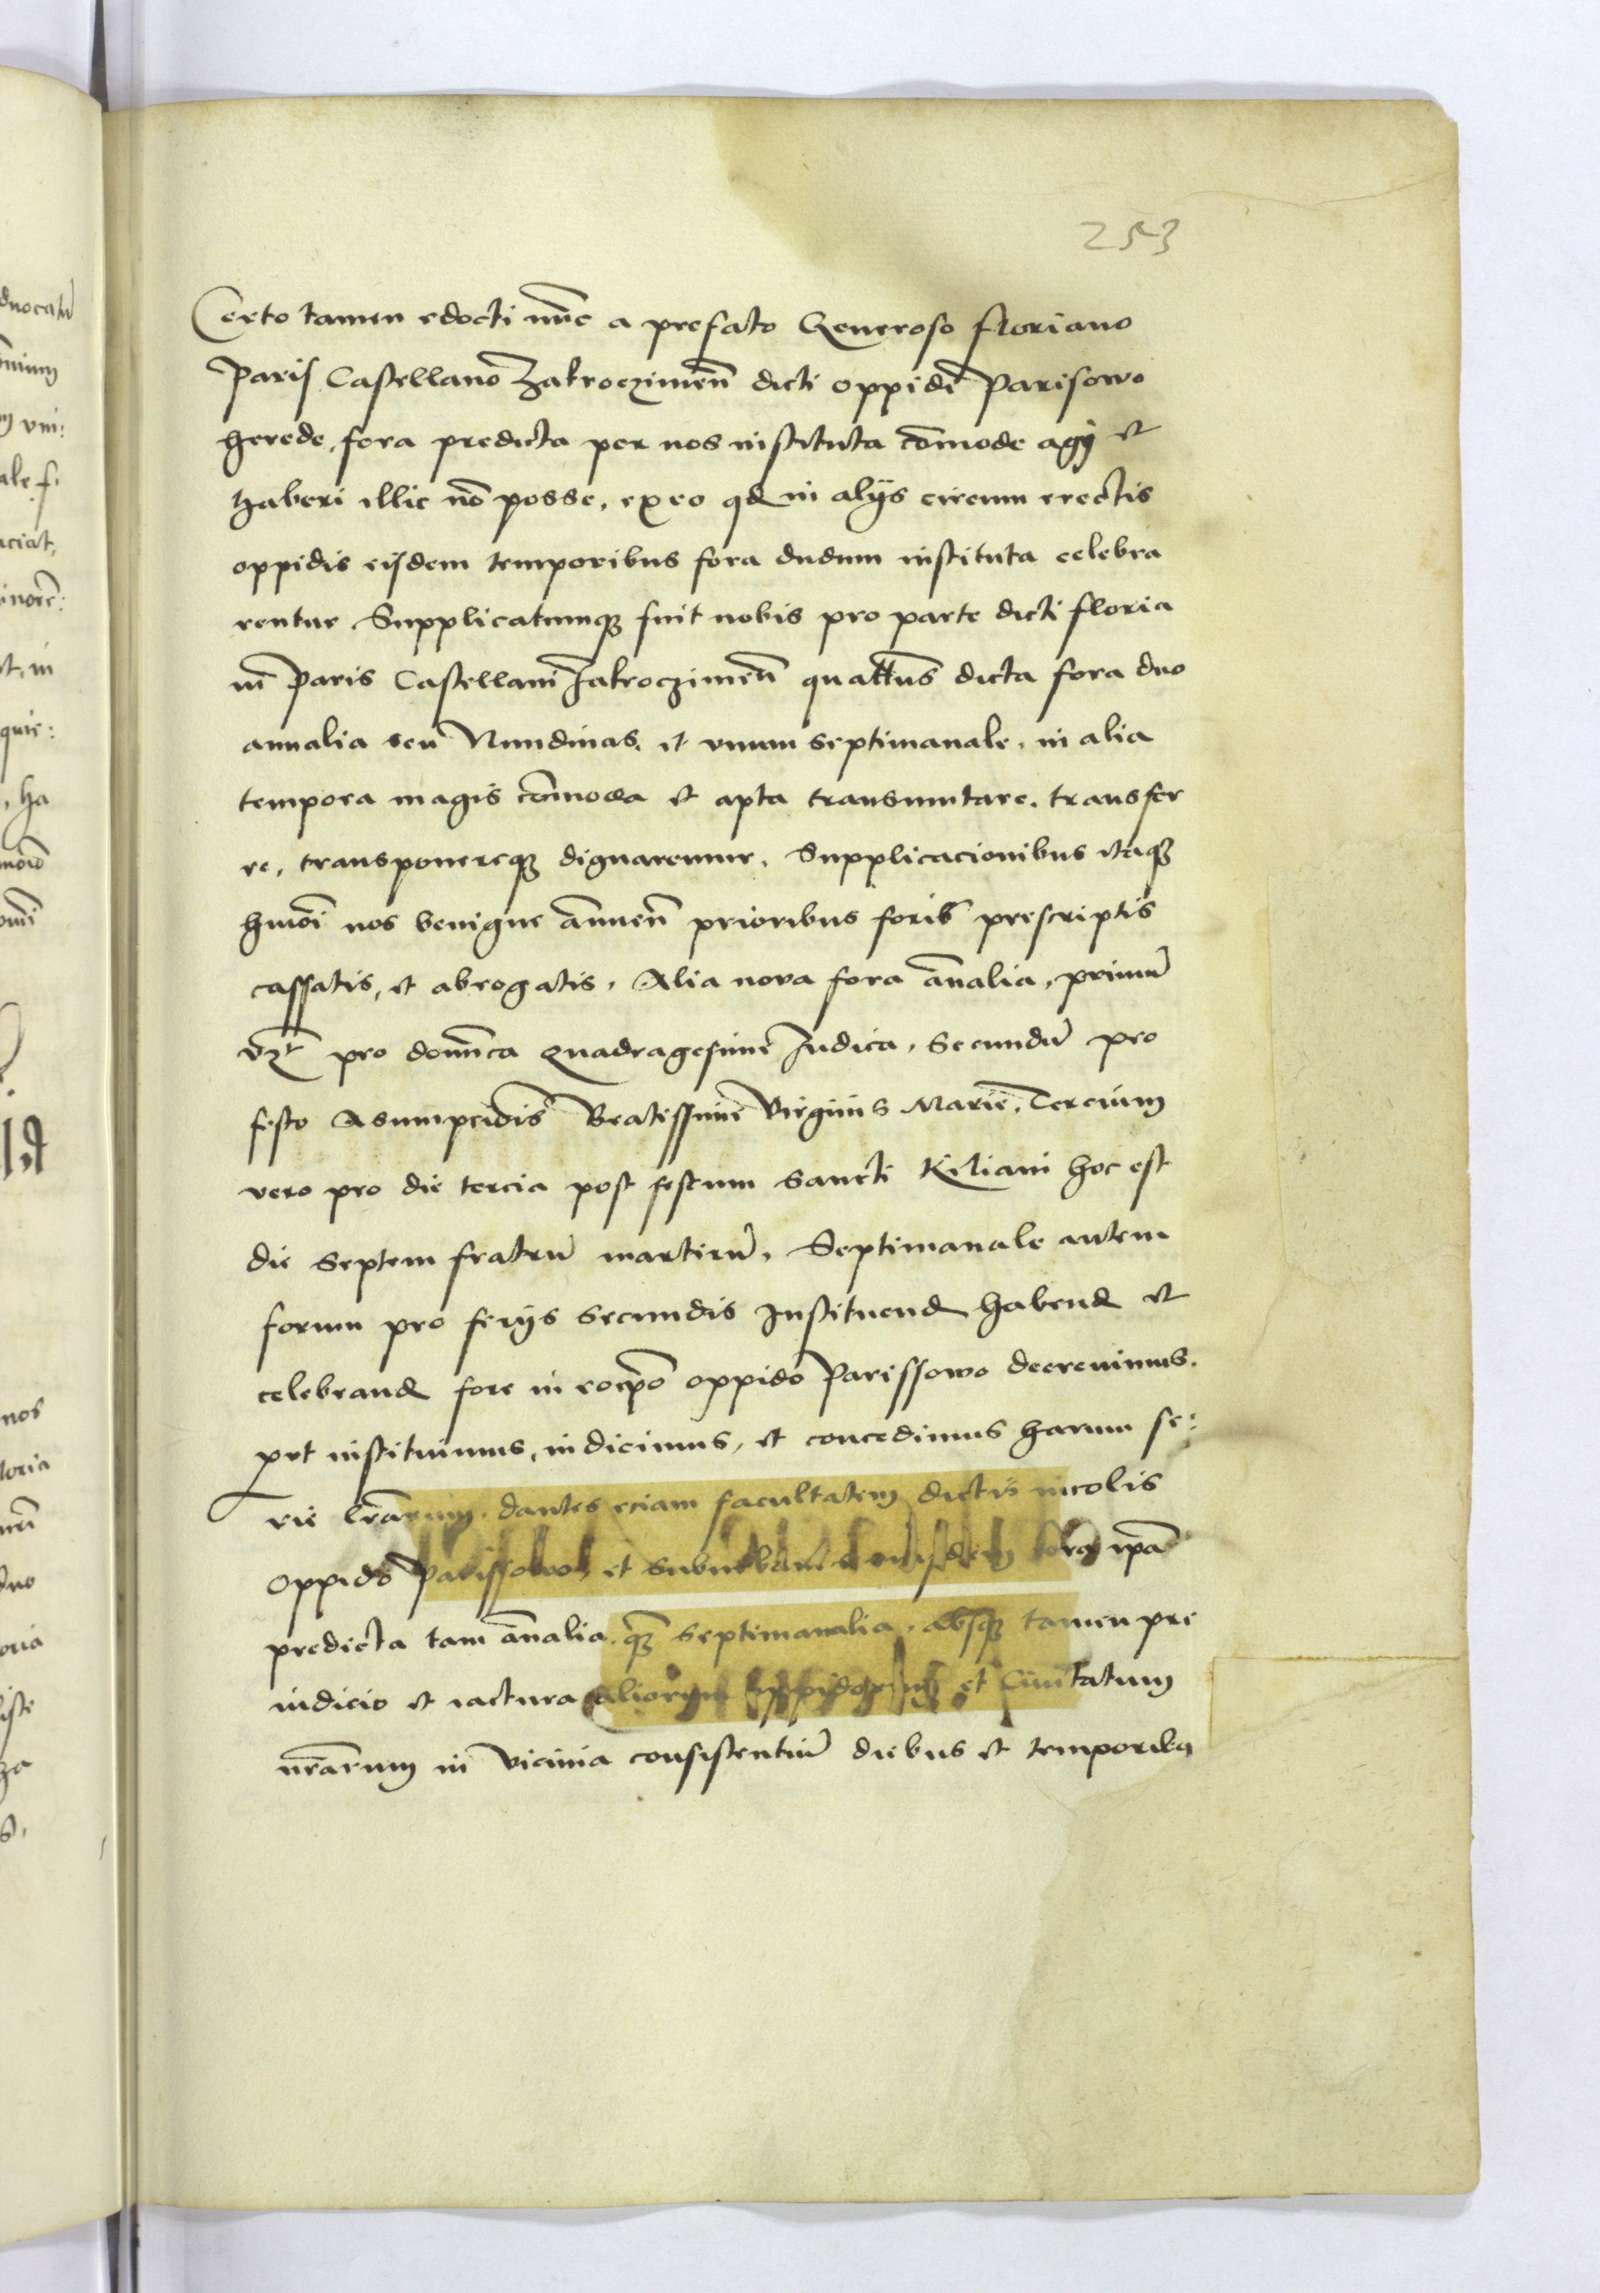 253
Certo tamen edocti nũc a prefato Generoso Floriano
Paris Castellano Zakroczimeñ dicti oppidi Parisowo
herede, fora predicta per nos instituta cõmode agÿ et
haberi illic nõ posse, ex eo qd in alÿs circum erectis
oppidis eisdem temporibus fora dudum instituta celebra
rentur Supplicatumqȝ fuit nobis pro parte dicti Floria
ni Paris Castellani Zakroczimeñ quatt̃us dicta fora duo
annalia seu Nundinas, et unum septimanale, in alia
tempora magis cõmoda et apta transmutare, transfer
re, transponereqȝ dignaremur. Supplicacionibus itaqȝ
hmõi nos benigne annueñ prioribus forib prescriptis
cassatis, et abrogatis, Alia nova fora ãnalia, primũ
vȝt pro domĩca Quadragesime Judica, Secundũ pro
festo Asumpciõis Beatissime Virginis Marie, Tercium
vero pro die tercia post festum Sancti Kiliani hoc est
die Septem fratrũ martirũ, Septimanale autem
forum pro ferÿs secundis Instituend habend et
celebrand fore in eocp̃o oppido Parissowo decrevimus,
prt instituimus, indicimus, et concedimus harum se:
rie lr̃arum, dantes eciam facultatem dictis incolis
oppido Parissowo, et Suburbani eiusdem fora ip̃a
predicta tam ãnalia, qȝ septimanalia, absqȝ tamen pre
iudicio et iactura aliorum oppidorum et Civitatum
nr̃arum in vicinia consistentiũ diebus et temporibȝ